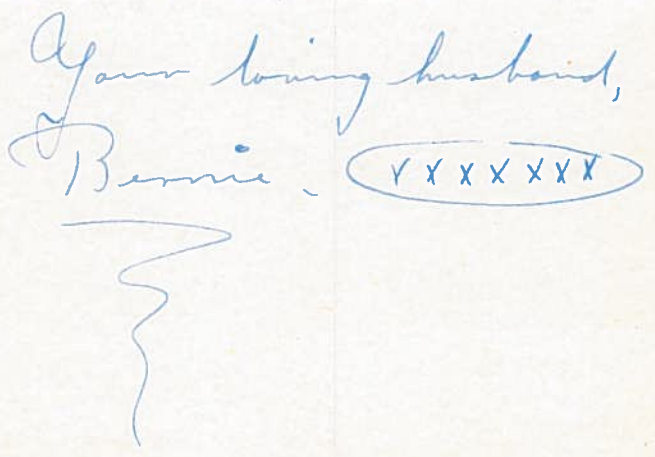 Your loving husband,
Bernie. x x x x x x x